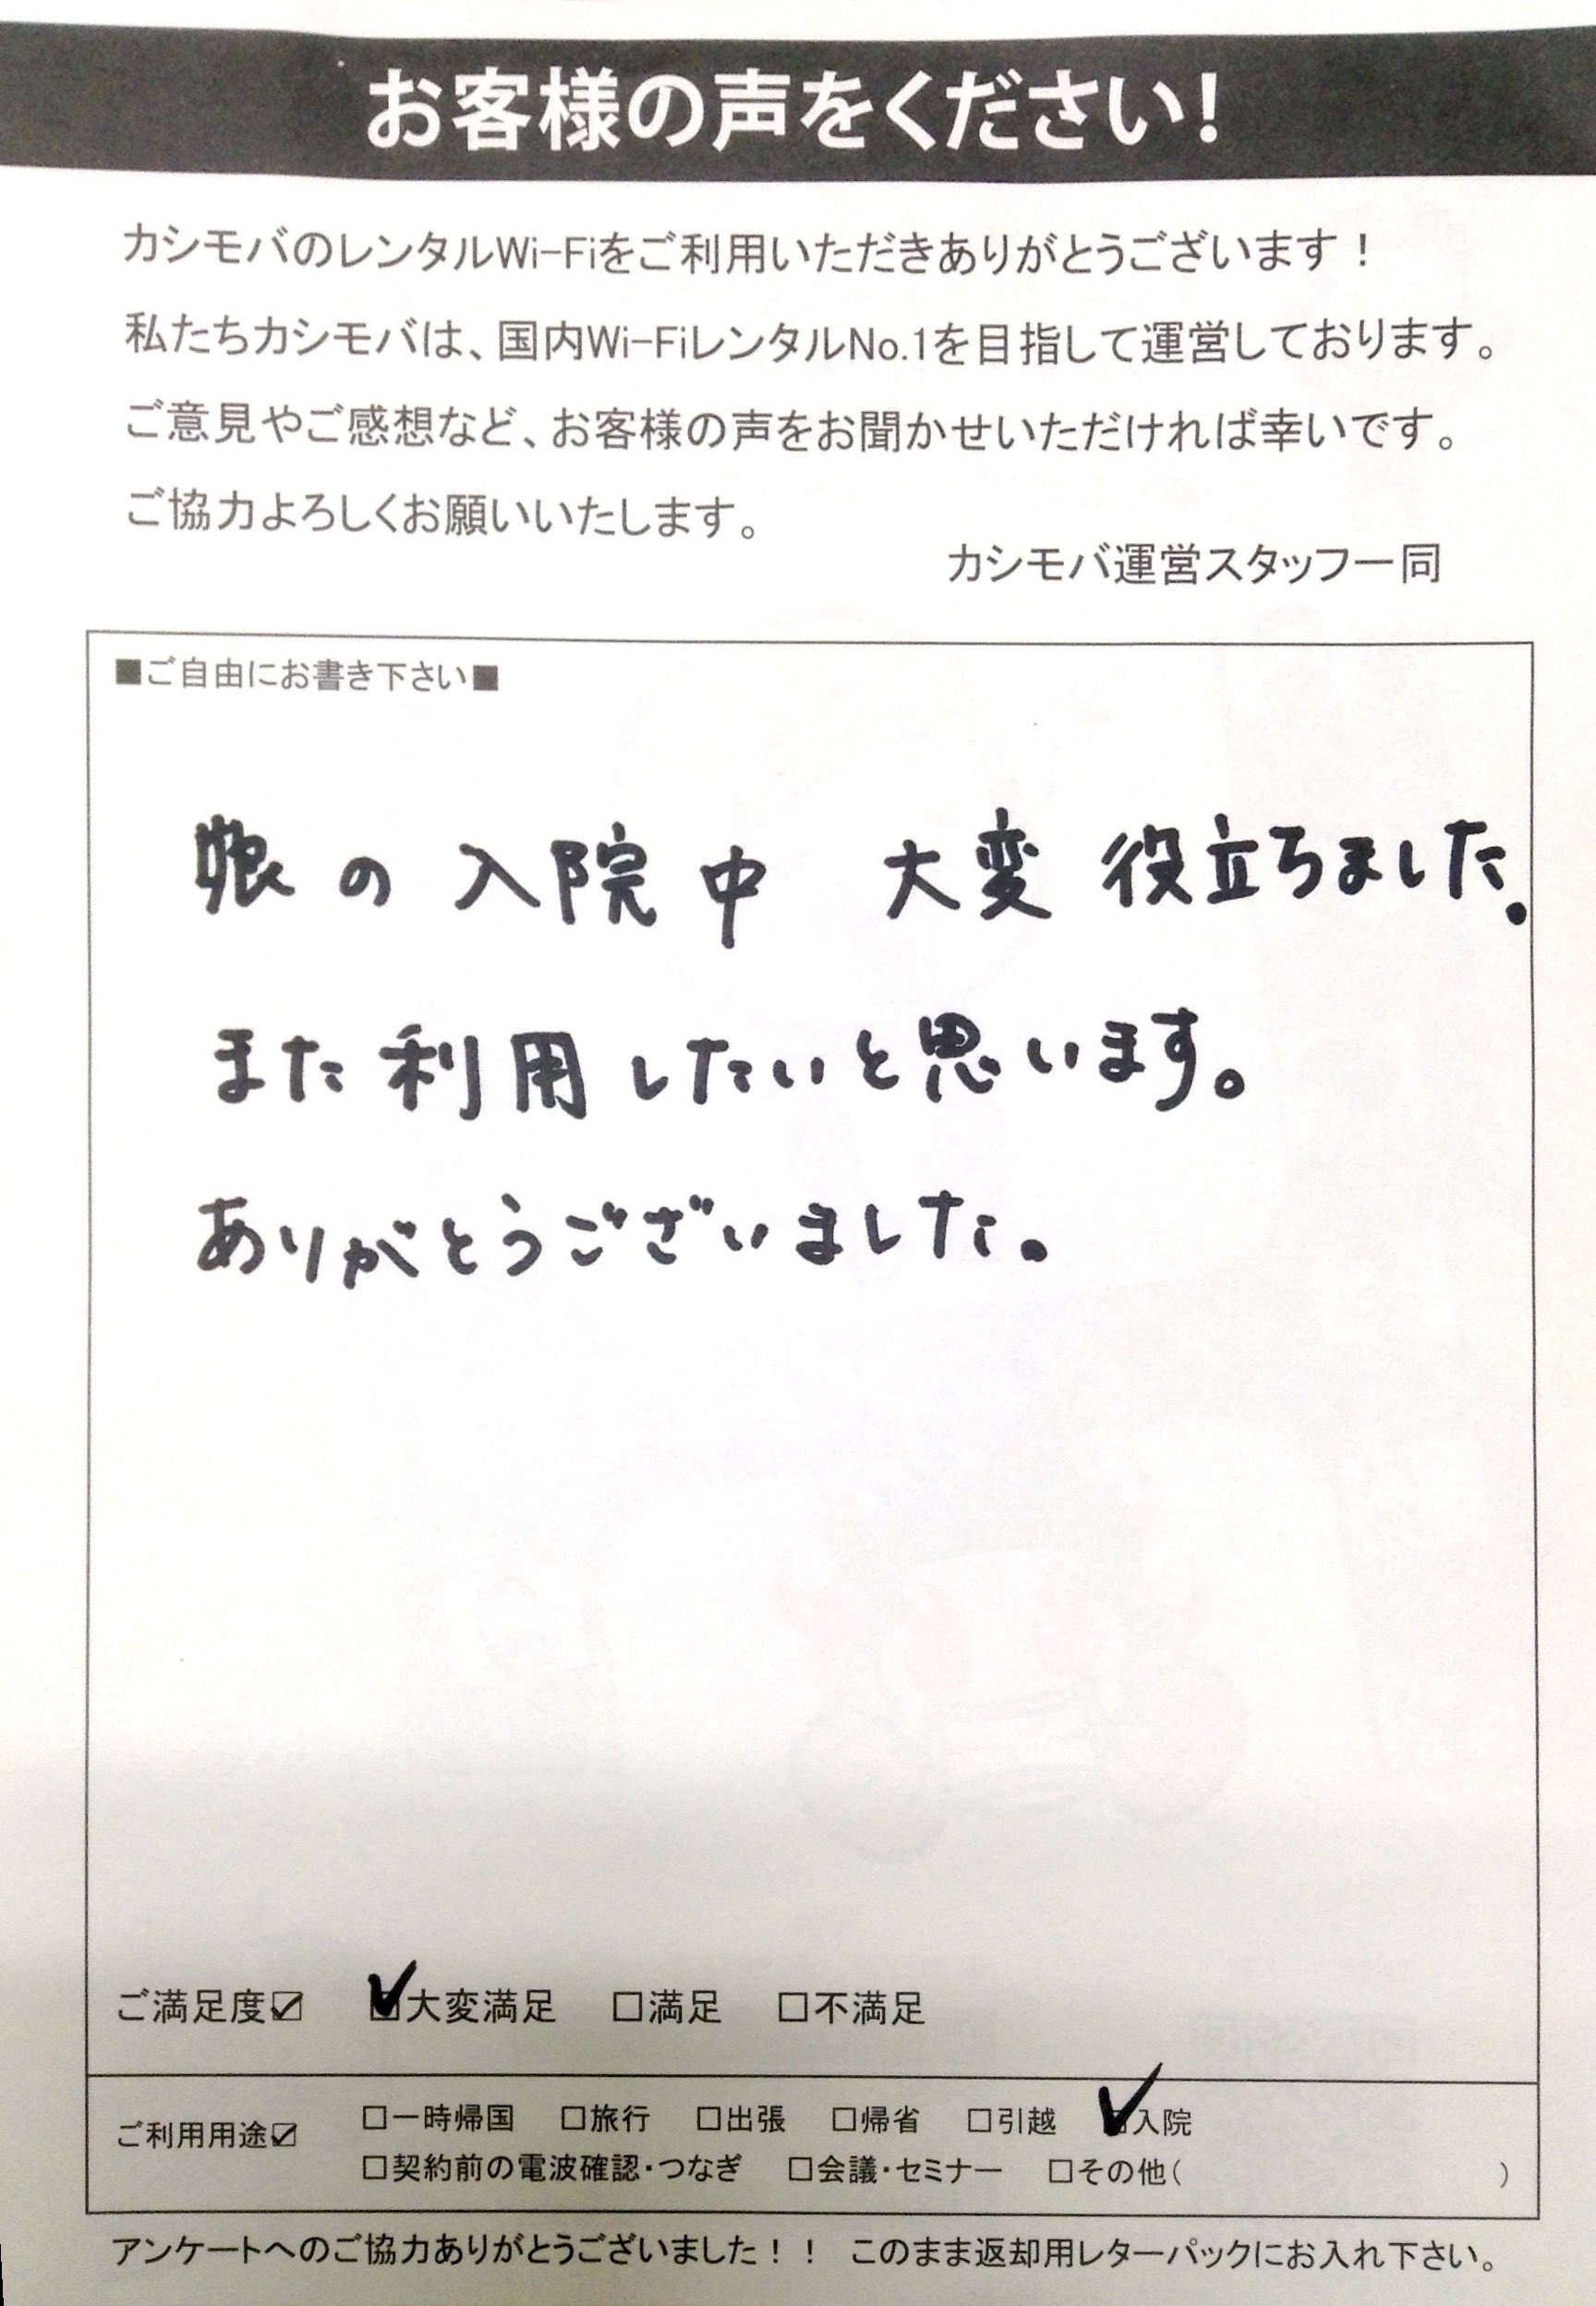 お客様の声をください!
カシモバのレンタルWi-Fiをご利用いただきありがとうございます！
私たちカシモバは、国内Wi-FiレンタルNo.1を目指して運営しております。
ご意見やご感想など、お客様の声をお聞かせいただければ幸いです。
ご協力よろしくお願いいたします。
カシモバ運営スタッフ一同
■ご自由にお書き下さい■
娘の入院中 大変役立ちました。
また利用したいと思います。
ありがとうございました。
ご満足度☑ ☑大変満足 □満足 □不満足
ご利用用途☑ □一時帰国 □旅行 □出張 □帰省 □引越 ☑入院
□契約前の電波確認・つなぎ □会議・セミナー □その他( )
アンケートへのご協力ありがとうございました！！ このまま返却用レターパックにお入れ下さい。